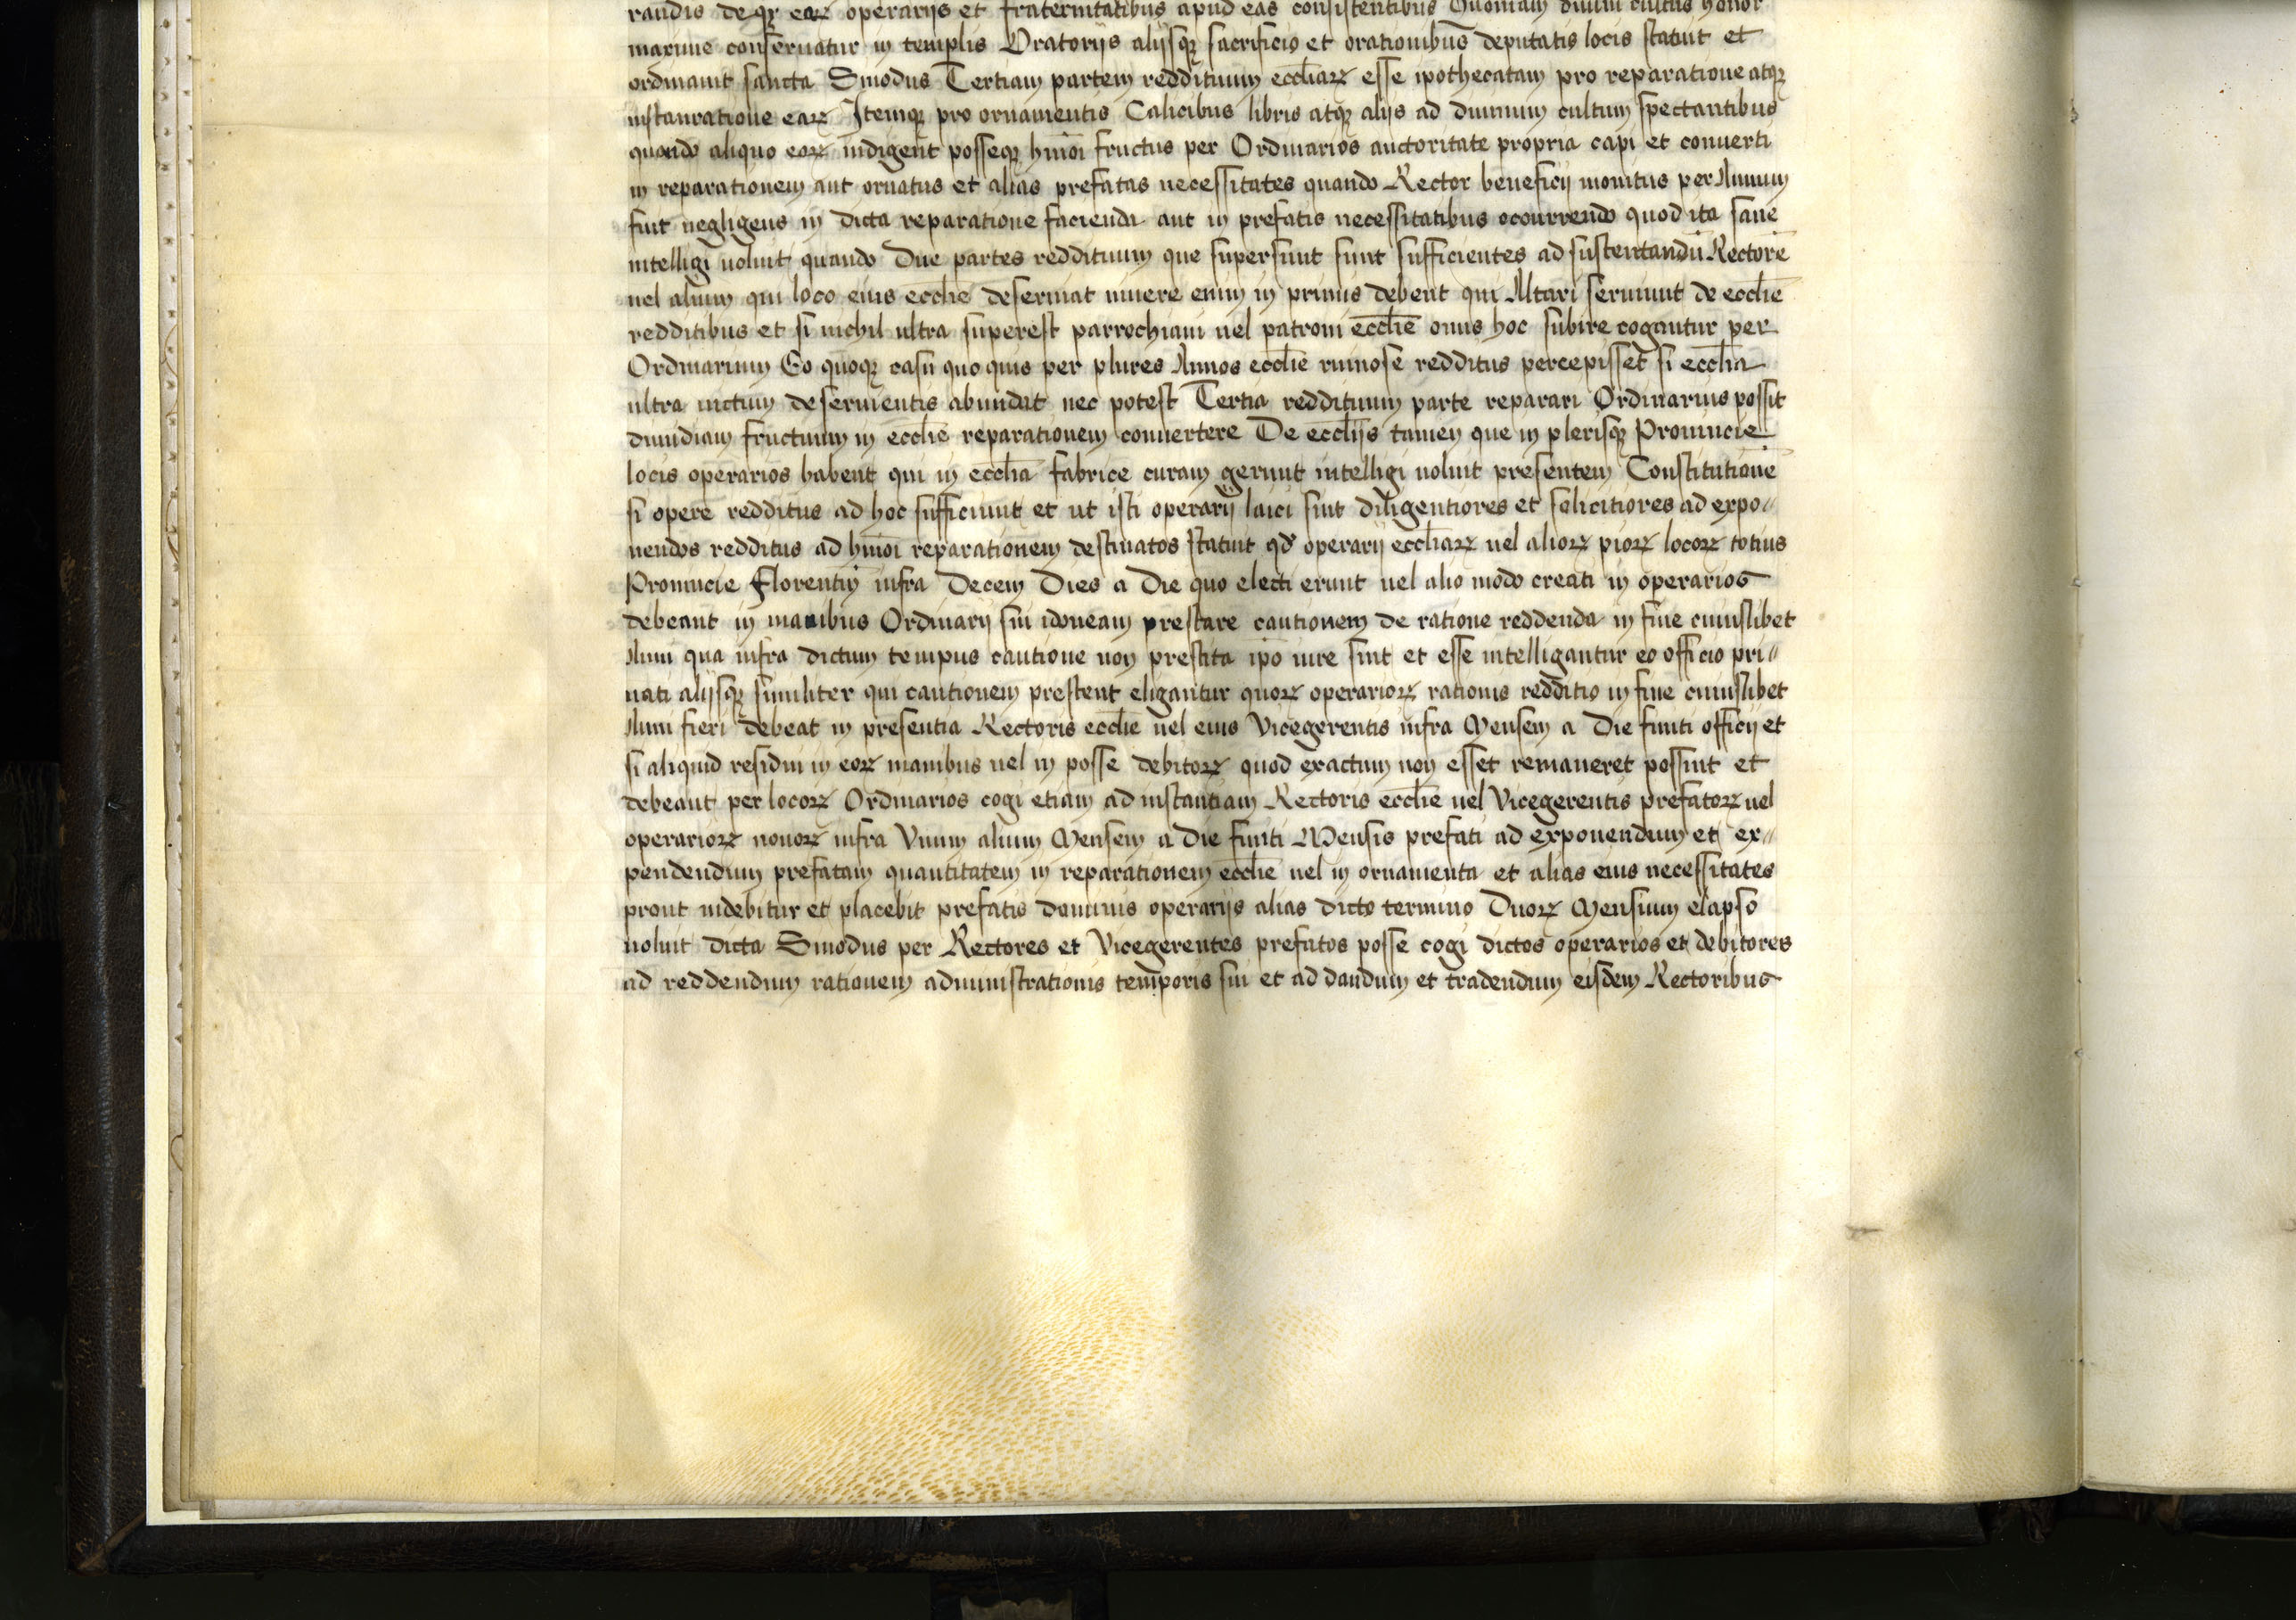 randis deqꝫ eaꝝ operarijs et fraternitatibus apud eas consistentibus Quoniam diuini cultus honor
maxime conseruatur in templis Oratorijs alijsqꝫ sacrificio et orationibus deputatis locis statuit et
ordinauit sancta Sinodus Tertiam partem reddituum eccliaꝝ esse ipothecatam pro reparatione atqꝫ
instauratione eaꝝ Itemqꝫ pro ornamentis Calicibus libris atqꝫ alijs ad diuinum cultum spectantibus
quando aliquo eoꝝ indigent posseqꝫ hmōi fructus per Ordinarios auctoritate propria capi et conuerti
in reparationem aut ornatus et alias prefatas necessitates quando Rector beneficij monitus per Annum
fuit negligens in dicta reparatione facienda aut in prefatis necessitatibus ocurrendo quod ita sane
intelligi uoluit quando Due partes reddituum que supersunt sunt sufficientes ad sustentandū Rectorē
uel alium qui loco eius ecclie deseruiat uiuere enim in primis debent qui Altari seruiunt de ecclie
redditibus et si nichil ultra superest parrochiani uel patroni ecclie onus hoc subire cogantur per
Ordinarium Eo quoqꝫ casu quo quis per plures Annos ecclie ruinose redditus percepisset si ecclia
ultra uictum deseruientis abundat nec potest Tertia reddituum parte reparari Ordinarius possit
dimidiam fructuum in ecclie reparationem conuertere De ecclijs tamen que in plerisqꝫ Prouincie
locis operarios habent qui in ecclia fabrice curam gerunt intelligi uoluit presentem Constitutionē
si opere redditus ad hoc sufficiunt et ut isti operarij laici sint diligentiores et solicitiores ad expo//
nendos redditus ad hmōi reparationem destinatos statuit qd operarij eccliaꝝ uel alioꝝ pioꝝ locoꝝ totius
Prouincie Florentiñ infra Decem Dies a Die quo electi erunt uel alio modo creati in operarios
debeant in manibus Ordinarij sui idoneam prestare cautionem de ratione reddenda in fine cuiuslibet
Anni qua infra dictum tempus cautione non prestita ipo iure sint et esse intelligantur eo officio pri//
uati alijsqꝫ similiter qui cautionem prestent eligantur quoꝝ operarioꝝ rationis redditio in fine cuiuslibet
Anni fieri debeat in presentia Rectoris ecclie uel eius Vicegerentis infra Mensem a Die finiti officij et
si aliquid residui in eoꝝ manibus uel in posse debitoꝝ quod exactum non esset remaneret possint et
debeant per locoꝝ Ordinarios cogi etiam ad instantiam Rectoris ecclie uel Vicegerentis prefatoꝝ uel
operarioꝝ nouoꝝ infra Vnum alium Mensem a Die finiti Mensis prefati ad exponendum et ex//
pendendum prefatam quantitatem in reparationem ecclie uel in ornamenta et alias eius necessitates
prout uidebitur et placebit prefatis dominis operarijs alias dicto termino Duoꝝ Mensium elapso
uoluit dicta Sinodus per Rectores et Vicegerentes prefatos posse cogi dictos operarios et debitores
ad reddendum rationem administrationis temporis sui et ad dandum et tradendum eisdem Rectoribus